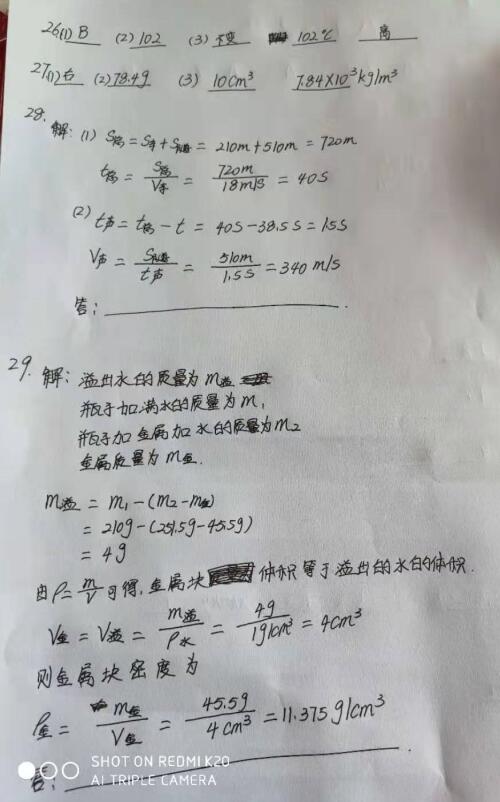 26(1) B (2) 102 (3) 不变 102℃ 高
27(1)右 (2)78.4g (3) 10cm³ 7.84×10³kg/m³
28.
解:(1) S总=S车+S隧道 = 210m+510m = 720m
t总 = S总/V车 = 720m/18m/s = 40s
(2) t声= t总 - t = 40s-38.5s=1.5s
V声 = S隧道/t声 = 510m/1.5s = 340 m/s
答:
29. 解: 溢出水的质量为m溢
瓶子加满水的质量为m₁
瓶子加金属加水的质量为m₂
金属质量为m金.
m溢 = m₁-(m₂-m金)
= 210g-(251.5g-45.5g)
= 4g
由ρ=m/V可得,金属块体积等于溢出的水的体积.
V金=V溢= m溢/ρ水 = 4g/1g/cm³ = 4cm³
则金属块密度为
ρ金= m金/V金 = 45.5g/4cm³ = 11.375g/cm³
答:
SHOT ON REDMI K20
AI TRIPLE CAMERA